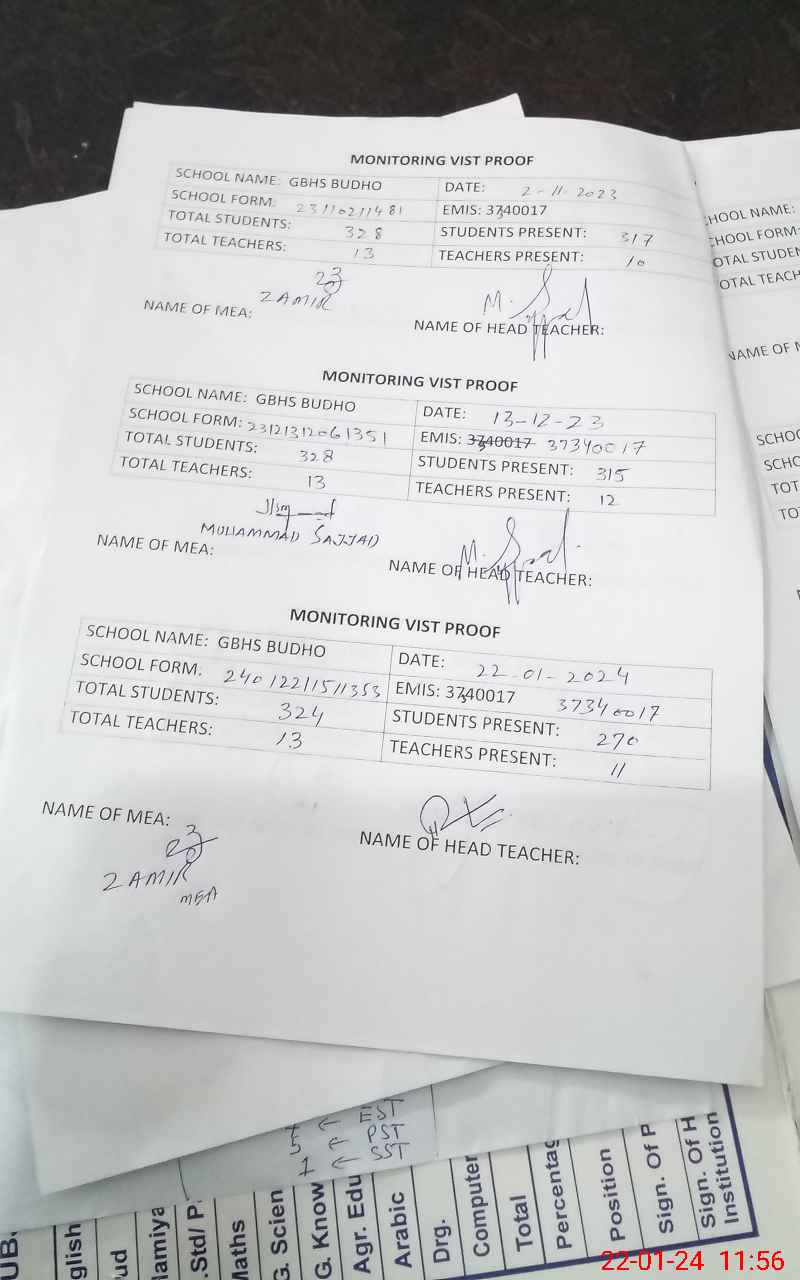 MONITORING VIST PROOF
SCHOOL NAME: GBHS BUDHO DATE: 2-11-2023
SCHOOL FORM: 23110211481 EMIS: 37340017
TOTAL STUDENTS: 328 STUDENTS PRESENT: 317
TOTAL TEACHERS: 13 TEACHERS PRESENT: 10
ZAMIR
NAME OF MEA: NAME OF HEAD TEACHER:
MONITORING VIST PROOF
SCHOOL NAME: GBHS BUDHO DATE: 13-12-23
SCHOOL FORM: 23121312061351 EMIS: 3740017 37340017
TOTAL STUDENTS: 328 STUDENTS PRESENT: 315
TOTAL TEACHERS: 13 TEACHERS PRESENT: 12
MUHAMMAD SAJJAD
NAME OF MEA: NAME OF HEAD TEACHER:
MONITORING VIST PROOF
SCHOOL NAME: GBHS BUDHO DATE: 22-01-2024
SCHOOL FORM: 24012211511353 EMIS: 37340017 37340017
TOTAL STUDENTS: 324 STUDENTS PRESENT: 270
TOTAL TEACHERS: 13 TEACHERS PRESENT: 11
NAME OF MEA: NAME OF HEAD TEACHER:
ZAMIR
MEA
SCHOOL NAME:
SCHOOL FORM:
EST
5 ← PST
1 ← SST
Maths
Agr. Edu
Arabic
Drg.
Computer
Total
Position
Sign. Of P
Sign. Of H
Institution
22-01-24 11:56